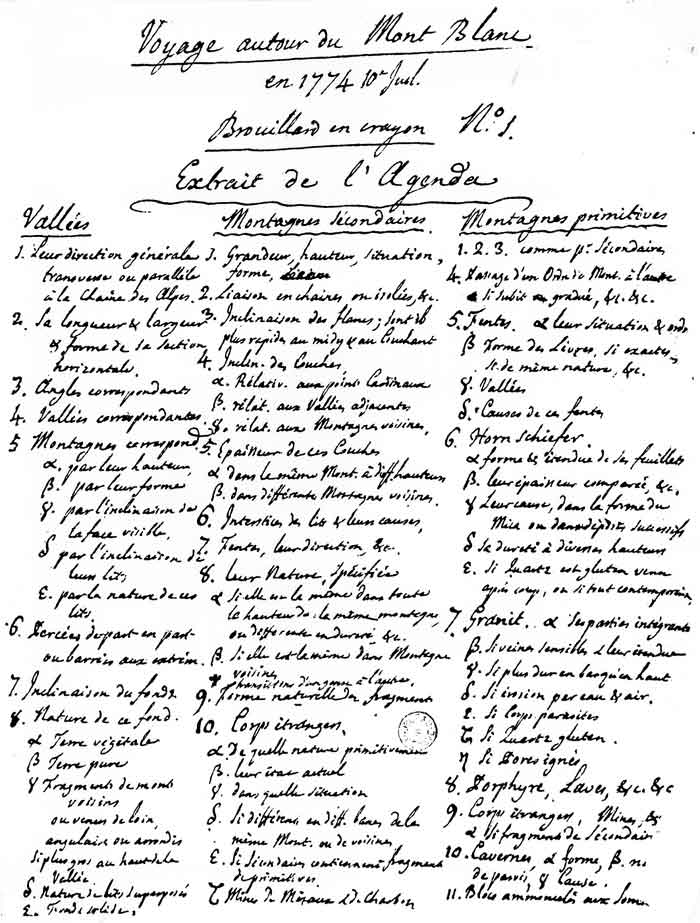 Voyage autour du Mont Blanc
en 1774 10r Juil.
Brouillard en crayon No 1.
Extrait de l'Agenda
Vallées
1. Leur direction générale
transverse ou parallele
à la Chaine des Alpes.
2. Sa longueur & largeur
& forme de sa section
horizontale.
3. Angles correspondants
4. Vallées correspondantes
5 Montagnes correspond
α. par leur hauteur,
β. par leur forme
γ. par l'inclinaison de
la face visible,
δ par l'inclinaison de
leurs lits
ε. par la nature de ces
lits.
6. Percées de part en part
ou barrées aux extrém.
7. Inclinaison du fonds
8. Nature de ce fond.
α Terre végétale
β Terre pure
γ Fragments de monts
voisins
ou venus de loin,
angulaires ou arrondis
si plus gros au haut de la
Vallée.
δ. Nature de lits superposés
ε. Fonds solide.
Montagnes sécondaires
1. Grandeur, hauteur, situation,
forme,
2. Liaison en chaines, ou isolées, &c.
3. Inclinaison des flancs; sont ils
plus rapides au midy & au Couchant
4. Inclin. des Couches,
α. Rélativ. aux points Cardinaux
β. rélat. aux Vallées adjacentes
γ. rélat. aux Montagnes voisines,
5. Epaisseur de ces Couches
α dans le même Mont. à diff. hauteurs
β. dans différentes Montagnes voisines.
6. Interstices des lits & leurs causes,
7. Fentes, leur direction, &c.
8. leur Nature, Spécifiée
α Si elle est la même dans toute
la hauteur de la même montagne,
ou différente en dureté, &c.
β. Si elle est la même dans Montagnes
voisines
transition d'un genre à l'autre,
9. Forme naturelle des fragments
10. Corps étrangers.
α De quelle nature primitivement
β. leur état actuel
γ. dans quelle situation
δ. Si différens en diff. bancs de la
même Mont. ou de voisines
ε. Si Sécondaires contiennent fragments
de primitives.
ζ Mines de Métaux & de Charbon
Montagnes primitives
1. 2. 3. comme pr. Sécondaires
4. Passage d'un Ordre de Mont. à l'autre
si subit ou gradué, &c. &c.
5. Fentes. α leur situation & ords
β Forme des Lèvres, si exactes,
si de même nature, &c.
γ. Vallées
δ. Causes de ces fentes
6. Horn schiefer.
α forme & étendue de ses feuillets
β. leur épaisseur comparée, &c.
γ Leur cause, dans la forme du
Mica ou dans dépôts successifs
δ Sa dureté à diverses hauteurs
ε. Si Quartz est gluten venu
après coup, ou si tout contemporain
7 Granit. α Ses parties intégrantes
β. Si veines sensibles & leur étendue
γ. Si plus dur en bas qu'en haut
δ. Si érosion par eau & air.
ε. Si Corps parasites
ζ Si Quartz gluten.
η Si
8. Porphyre, Laves, &c. &c
9. Corps étrangers, Mines, &
α Si fragments de Sécondair
10. Cavernes, α forme, β. n.
de parois, γ Cause.
11. Blocs ammoncelés aux somm